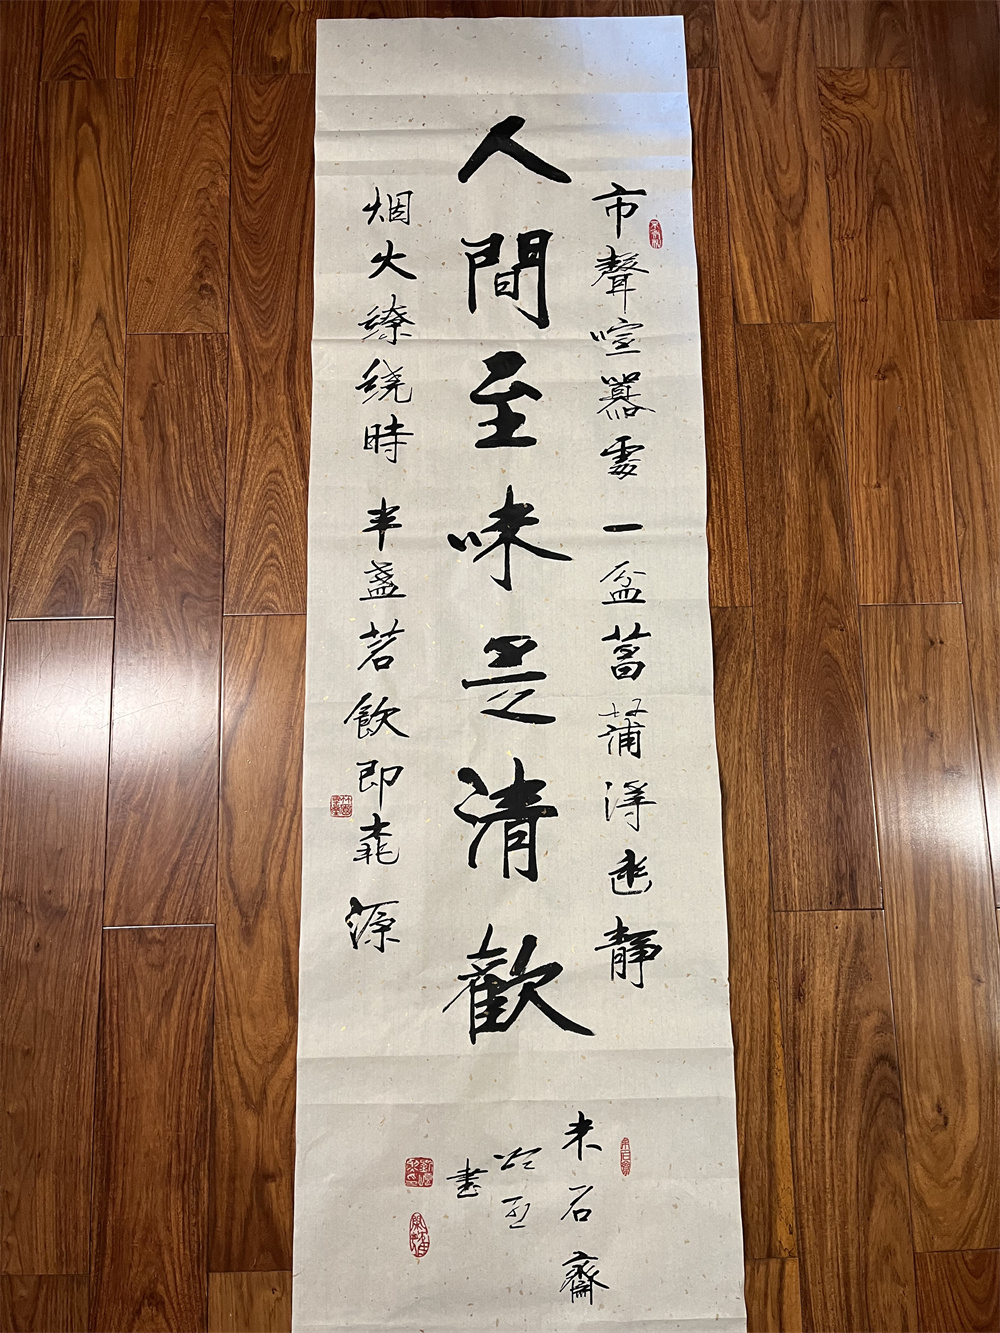 市聲喧囂處一盆菖蒲浮幽靜
人間至味是清歡
烟火繚绕時半盞茗飲即桃源
未石齋
書